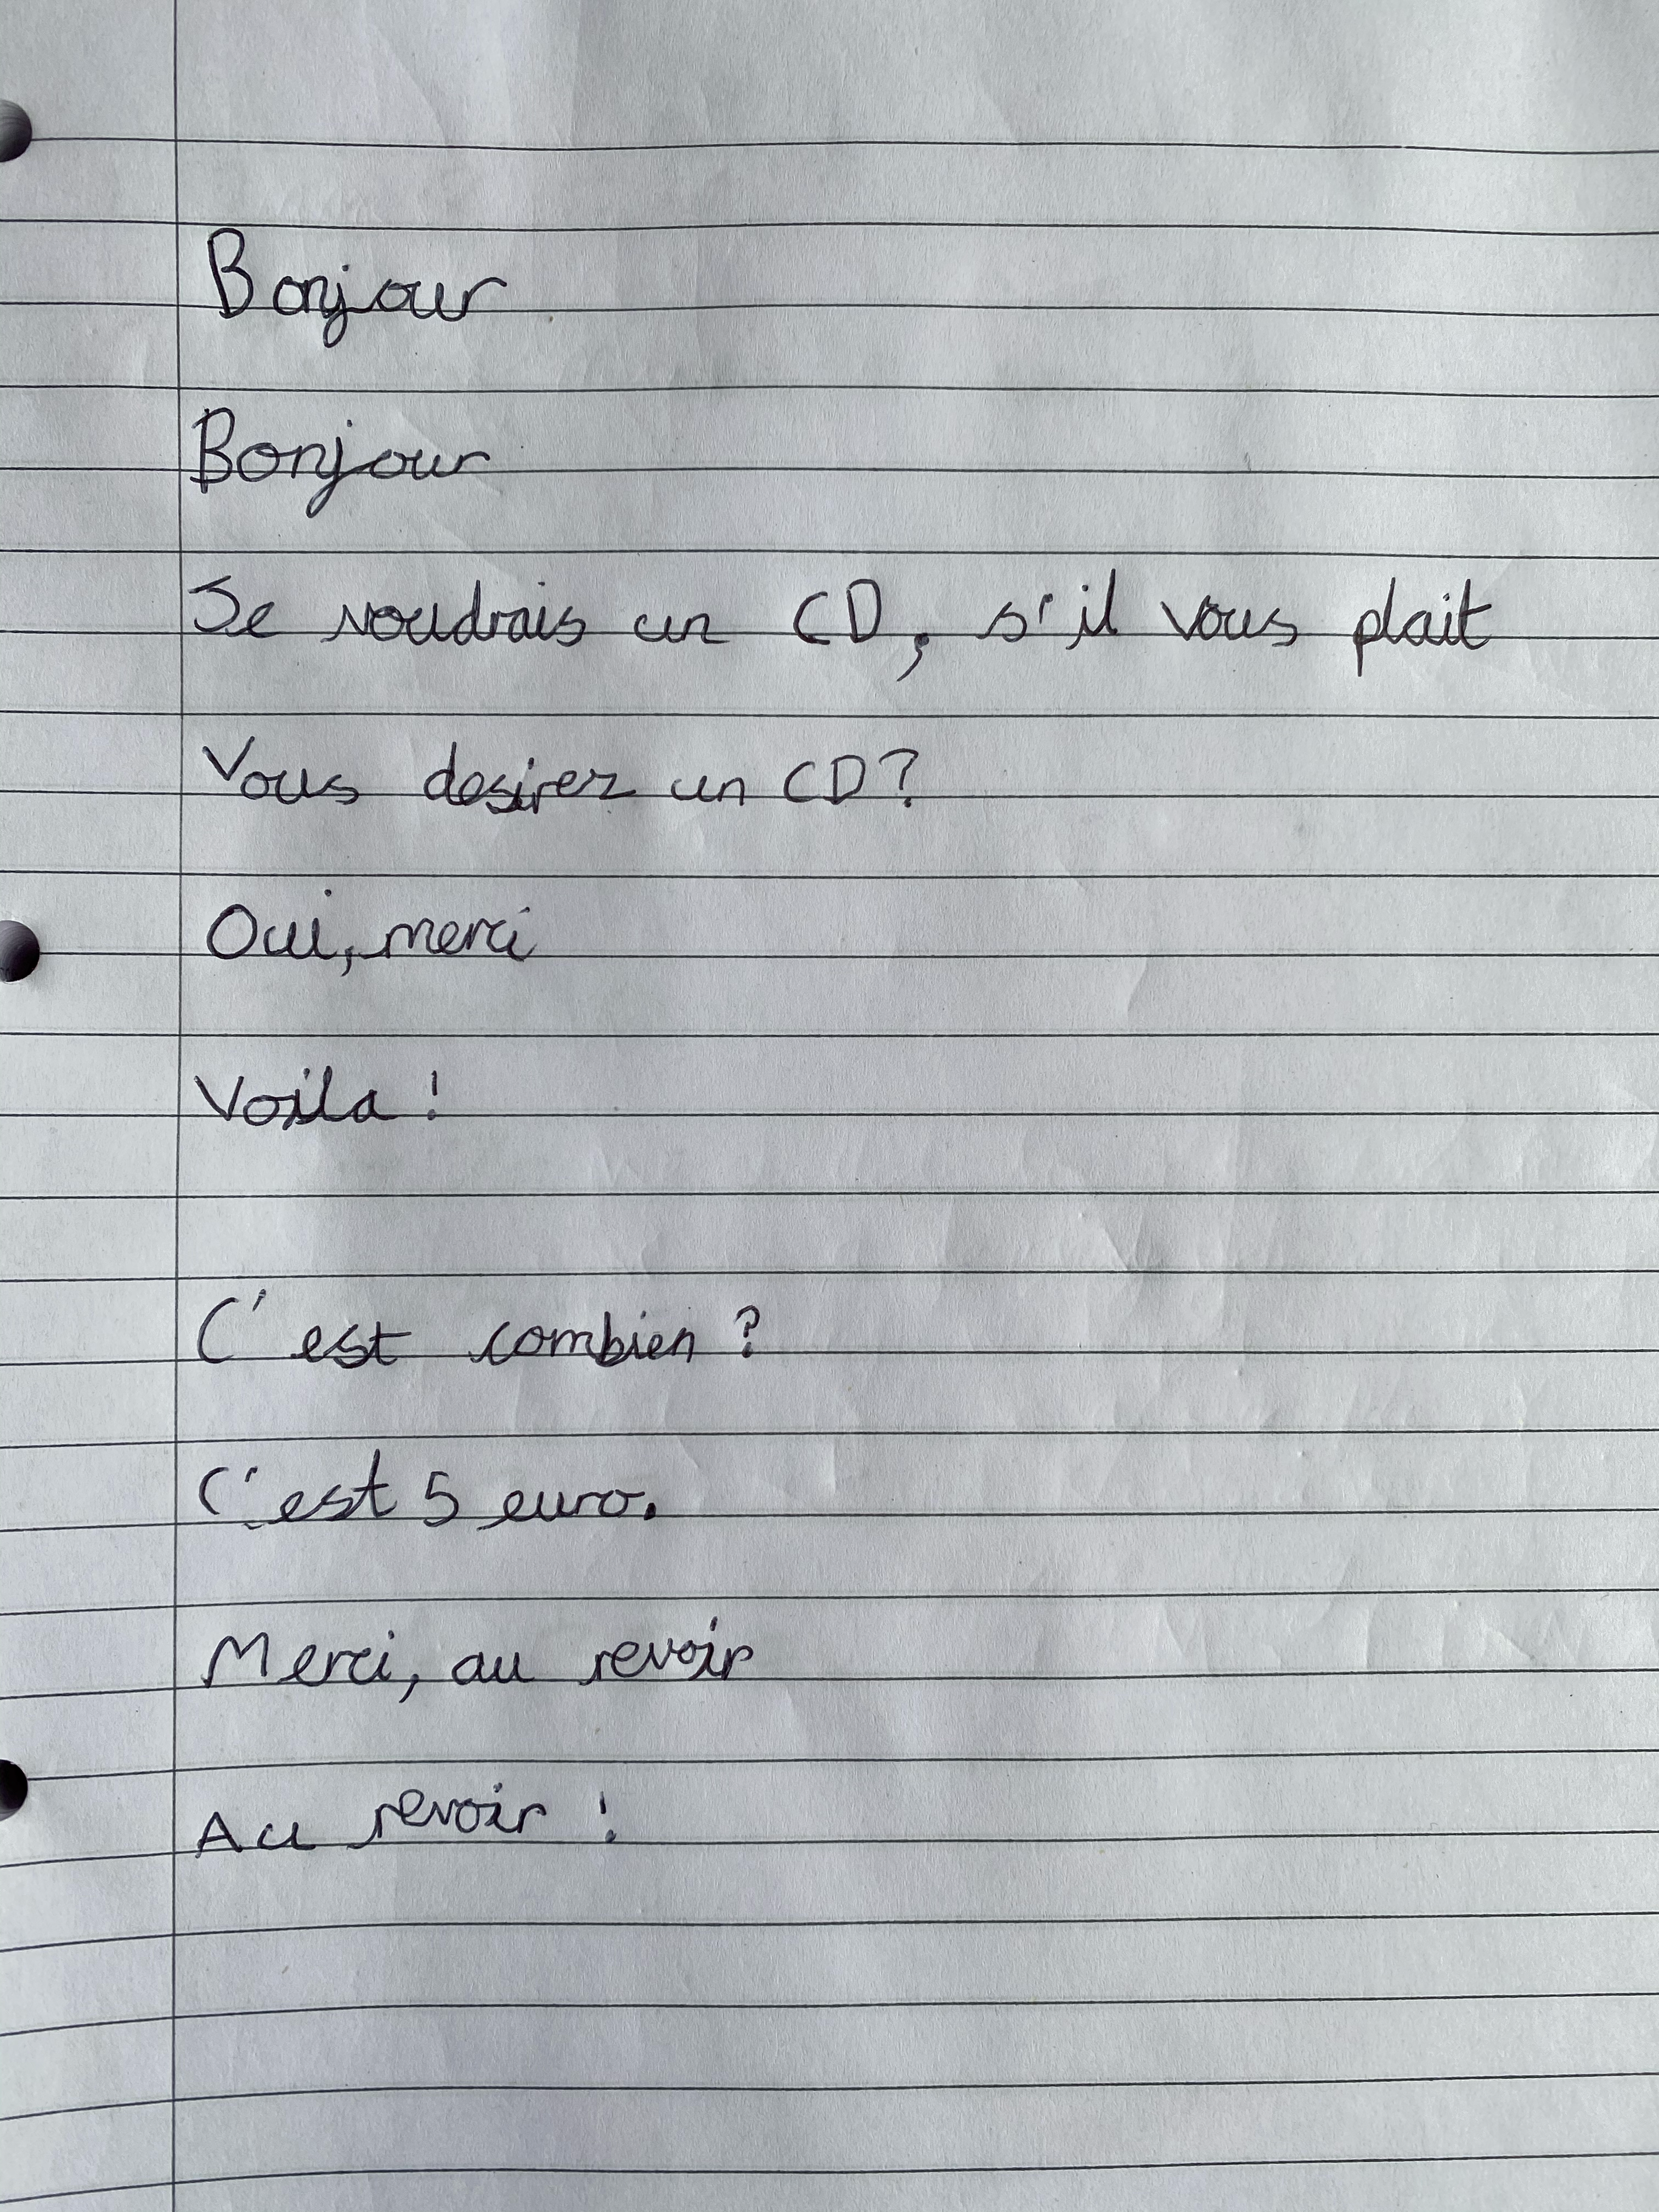 Bonjour
Bonjour
Je voudrais un CD, s'il vous plait
Vous desirez un CD?
Oui, merci
Voila !
C'est combien ?
C'est 5 euro.
Merci, au revoir
Au revoir !